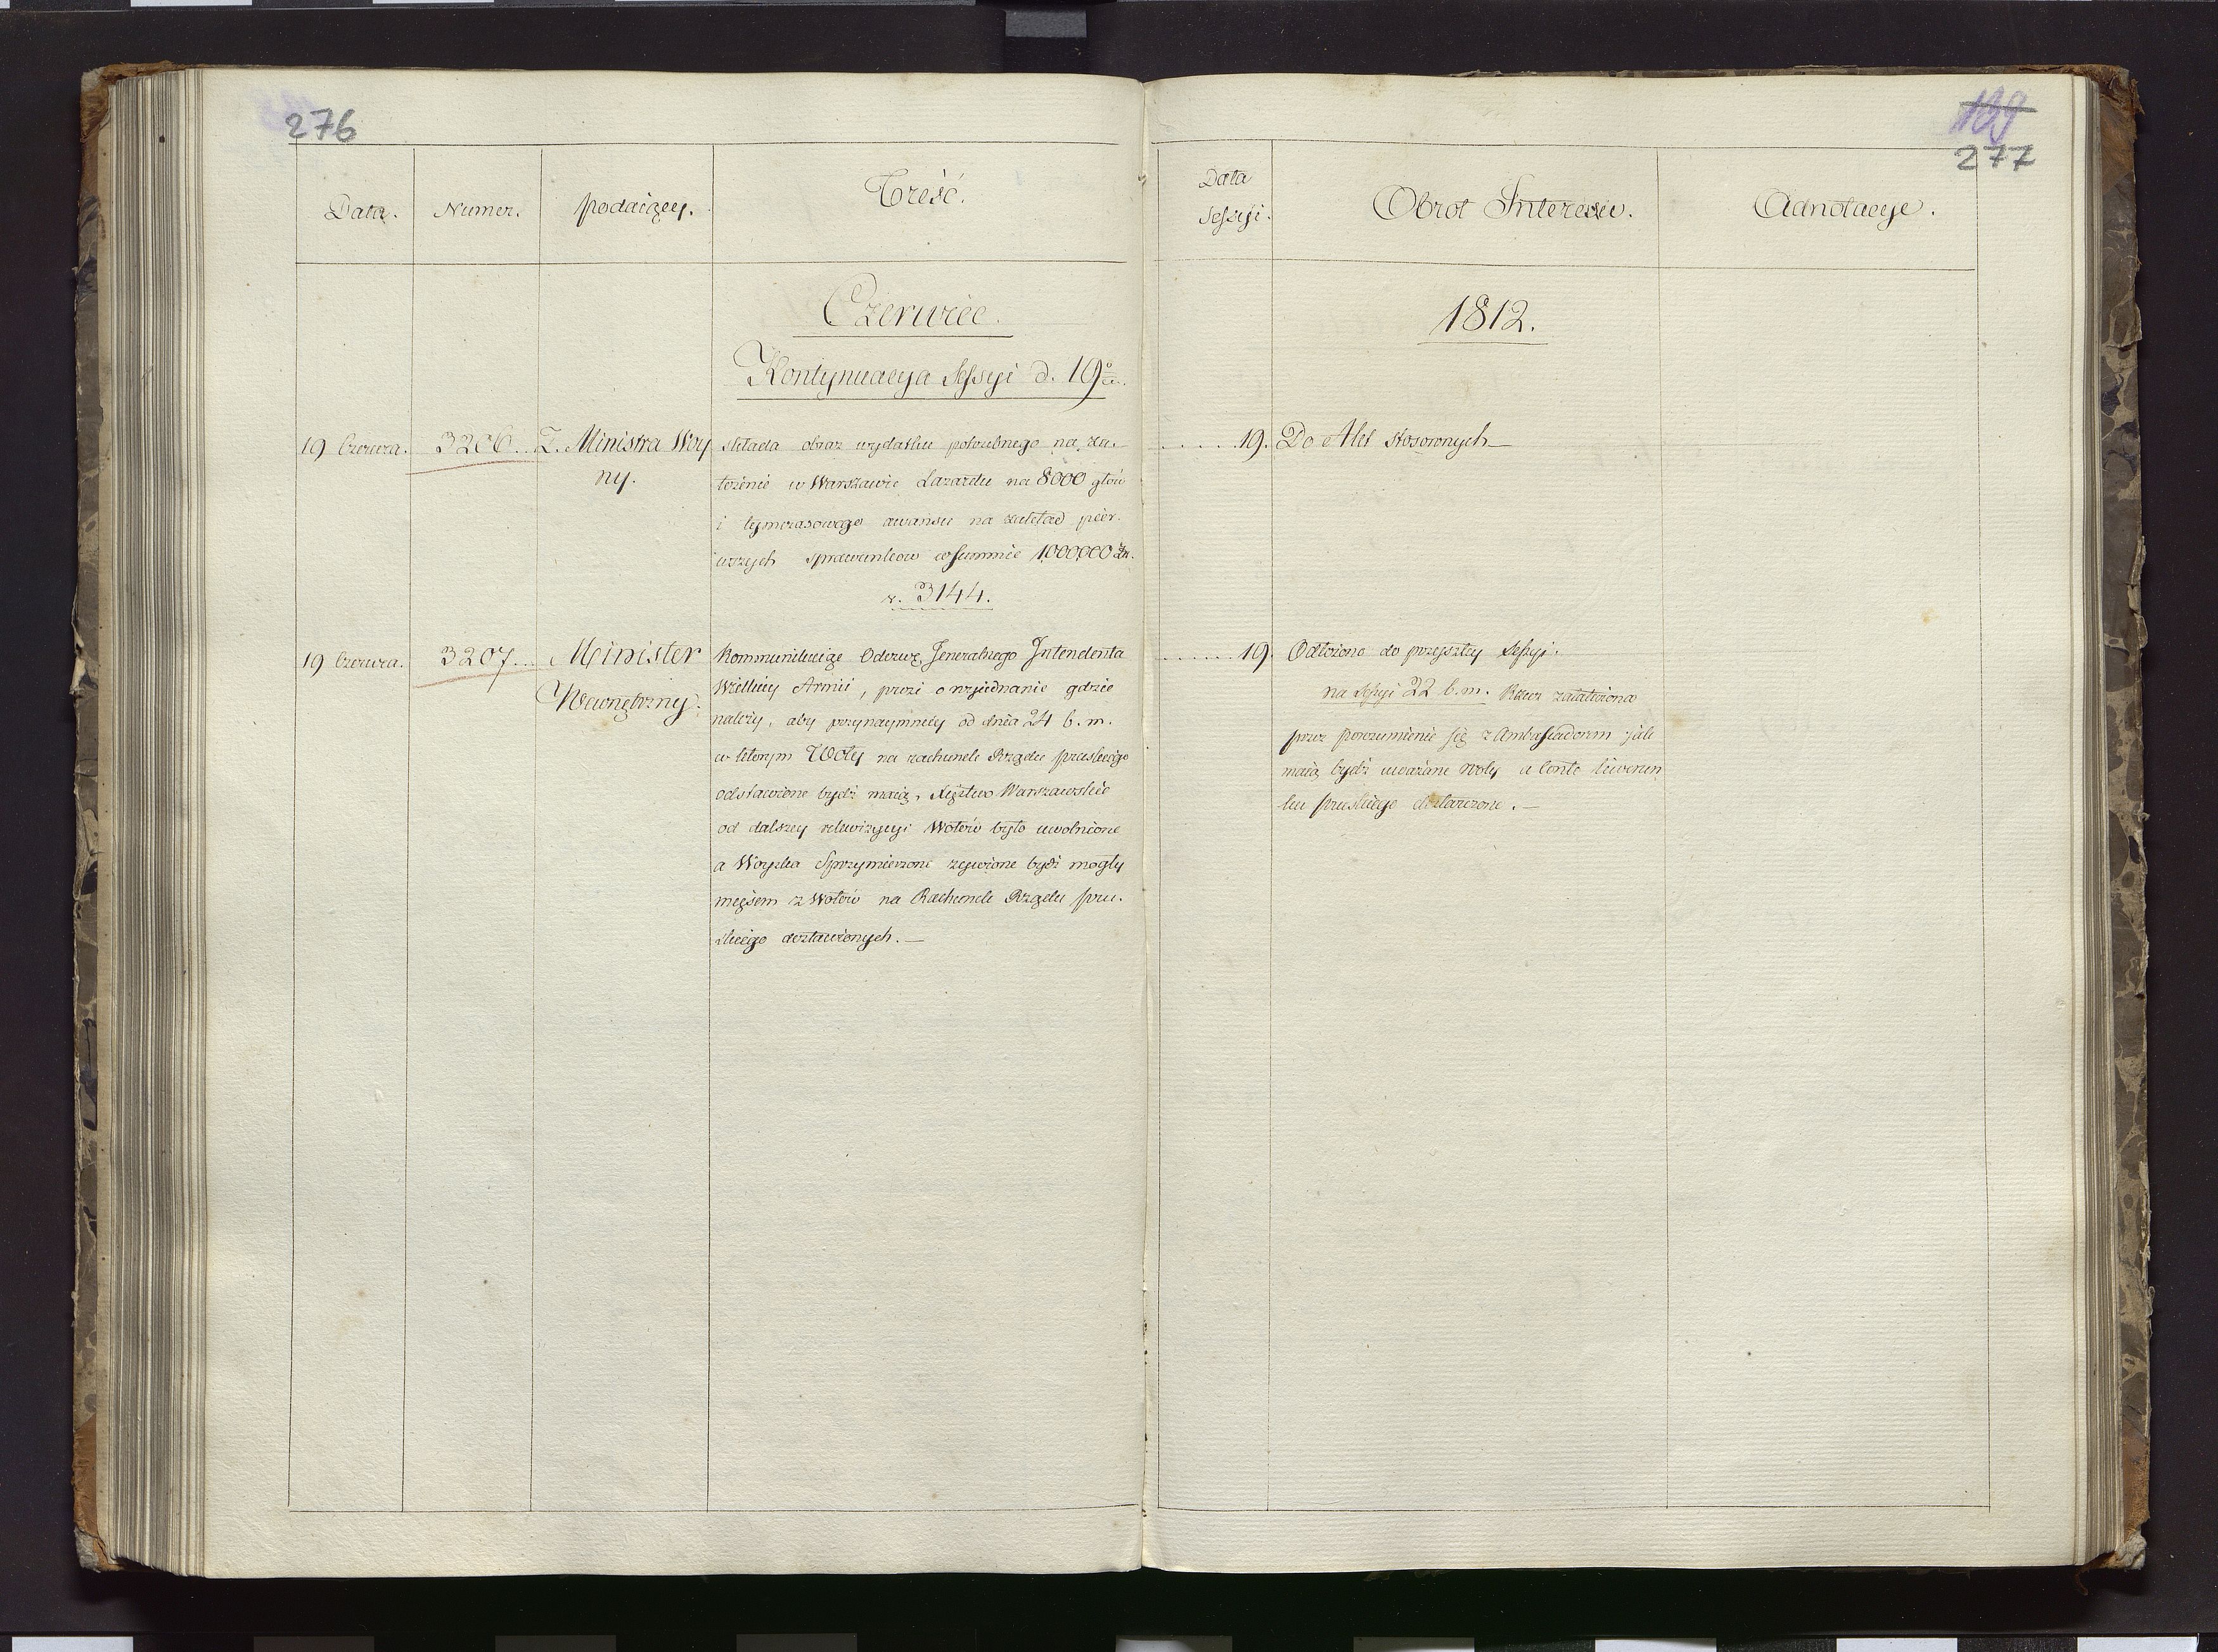 276
Data.
Numer.
podaiący.
Treść.
Czerwiec.
Kontynuacya Sessyi d. 19º
19 Czerwca.
3206.
Z. Ministra Woy
ny.
składa obraz wydatku potrzebnego na za-
łożenie w Warszawie Lazaretu na 8000 głów
i tymczasowego awansu na zakład pier-
wszych sprawunkow w summie 1,000,000 Zł.
v. 3144.
19 Czerwca.
3207
Minister
Wewnętrzny.
Kommunikuiąc Odezwę Jeneralnego Intendenta
Wielkiey Armii, prosi o wyiednanie gdzie
należy, aby przynaymniey od dnia 24 b. m.
w ktorym Woły na rachunek Rządu pruskiego
odstawione bydź maią, Xięstwo Warszawskie
od dalszey rekwizycyi Wołów było uwolnione
a Woyska Sprzymierzone żywione bydź mogły
mięsem z Wołów na Rachunek Rządu pru-
skiego dostawionych.—
199
277
Data
Sessyi.
Obrot Interessu.
Adnotacye.
1812.
19. Do Akt stosownych—
19 Odłożono do przyszłey Sessyi.
na Sessyi 22 b. m. Rzecz załatwiona
przez porozumienie się z Ambassadorem jak
maią bydź uważane woły a Conto liwerun
ku pruskiego dostarczone.—